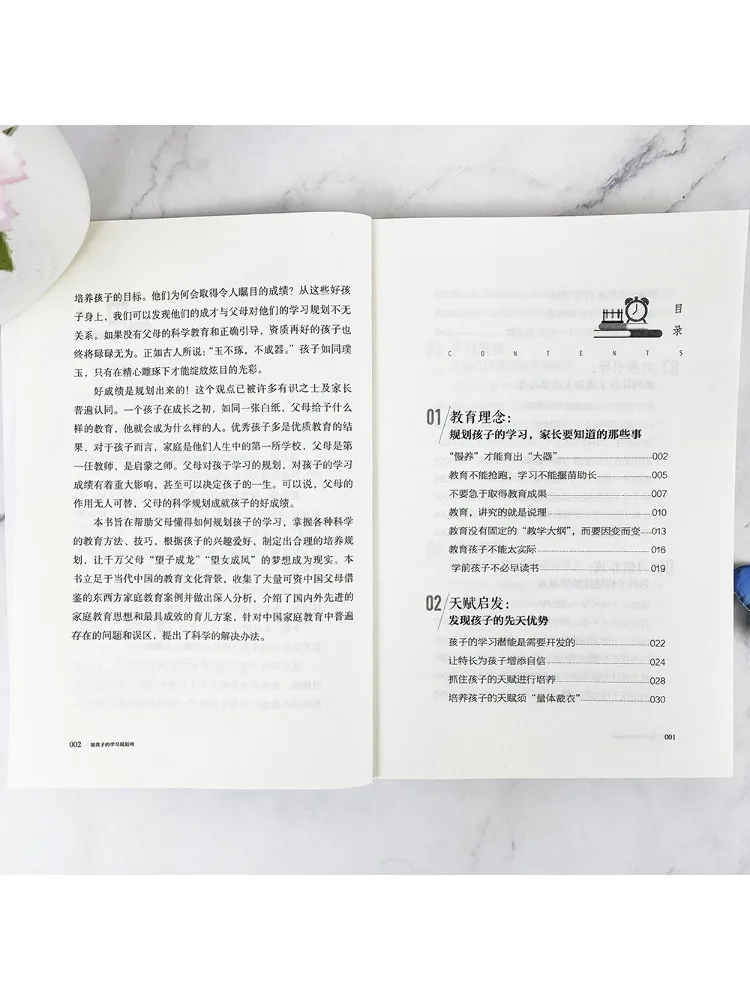 培养孩子的目标。他们为何会取得令人瞩目的成绩？从这些好孩
子身上，我们可以发现他们的成才与父母对他们的学习规划不无
关系。如果没有父母的科学教育和正确引导，资质再好的孩子也
终将碌碌无为。正如古人所说：“玉不琢，不成器。”孩子如同璞
玉，只有在精心雕琢下才能绽放炫目的光彩。
好成绩是规划出来的！这个观点已被许多有识之士及家长
普遍认同。一个孩子在成长之初，如同一张白纸，父母给予什么
样的教育，他就会成为什么样的人。优秀孩子多是优质教育的结
果，对于孩子而言，家庭是他们人生中的第一所学校，父母是第
一任教师，是启蒙之师。父母对孩子学习的规划，对孩子的学习
成绩有着重大影响，甚至可以决定孩子的一生。可以说，父母的
作用无人可替，父母的科学规划成就孩子的好成绩。
本书旨在帮助父母懂得如何规划孩子的学习，掌握各种科学
的教育方法、技巧，根据孩子的兴趣爱好，制定出合理的培养规
划，让千万父母“望子成龙”“望女成凤”的梦想成为现实。本
书立足于当代中国的教育文化背景，收集了大量可资中国父母借
鉴的东西方家庭教育案例并做出深入分析，介绍了国内外先进的
家庭教育思想和最具成效的育儿方案，针对中国家庭教育中普遍
存在的问题和误区，提出了科学的解决办法。
002 做孩子的学习规划师
目录
CONTENTS
01 教育理念：
规划孩子的学习，家长要知道的那些事
“慢养”才能育出“大器” 002
教育不能抢跑，学习不能揠苗助长 005
不要急于取得教育成果 007
教育，讲究的就是说理 010
教育没有固定的“教学大纲”，而要因变而变 013
教育孩子不能太实际 016
学前孩子不必早读书 019
02 天赋启发：
发现孩子的先天优势
孩子的学习潜能是需要开发的 022
让特长为孩子增添自信 024
抓住孩子的天赋进行培养 028
培养孩子的天赋须“量体裁衣” 030
001